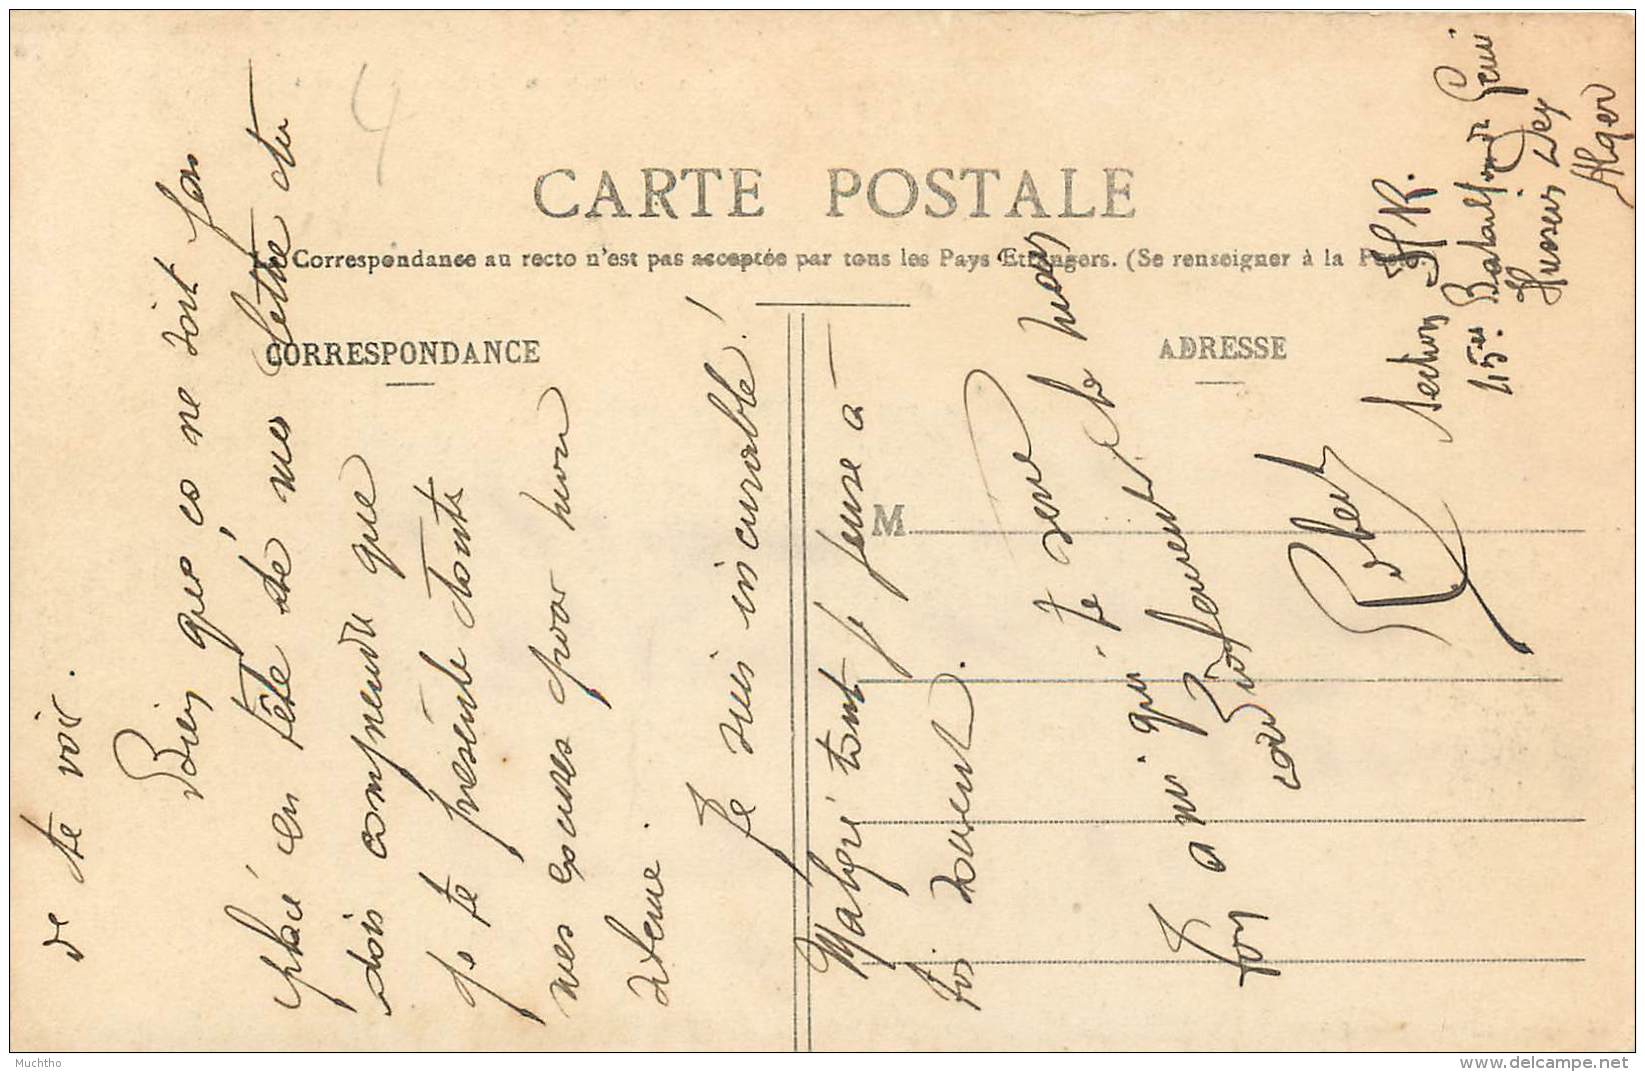 4
CARTE POSTALE
Correspondance au recto n'est pas acceptée par tous les Pays Etrangers. (Se renseigner à la Poste)
CORRESPONDANCE
ADRESSE
M
de te voir.
Bien que ce ne soit pas
placé en tête de mes lettre tu
dois comprendre que
je te présente toute
mes excuses pour mon
silence.
Je suis incurable!
Malgré tout je pense à
toi souvent.
Je serre la main
Ton ami qui te
Robert
Section H R.
45e Bataillon de Génie
Hussein Dey
Alger
Muchtho
delcampe.net